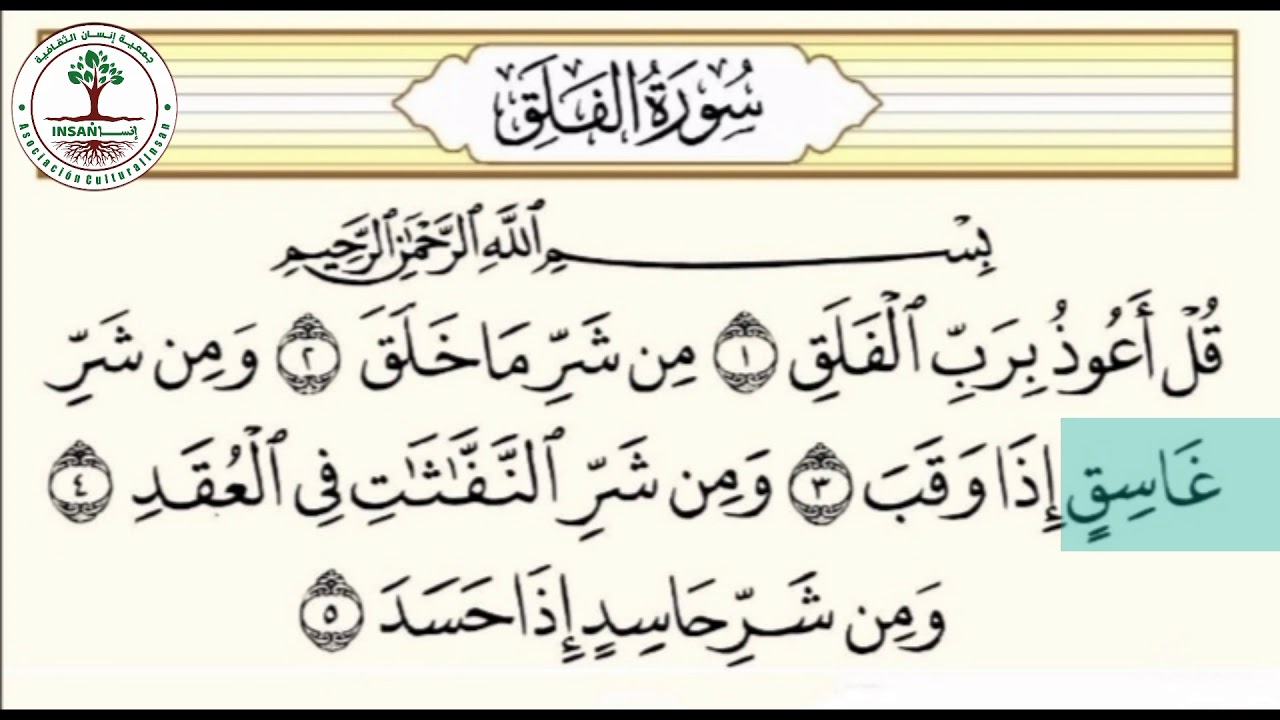 جمعية إنسان الثقافية
INSAN إنسان
Asociación Cultural Insan
سُورَةُ الفَلَقِ
بِسْمِ ٱللَّهِ ٱلرَّحْمَٰنِ ٱلرَّحِيمِ
قُلْ أَعُوذُ بِرَبِّ ٱلْفَلَقِ ١ مِن شَرِّ مَا خَلَقَ ٢ وَمِن شَرِّ
غَاسِقٍ إِذَا وَقَبَ ٣ وَمِن شَرِّ ٱلنَّفَّٰثَٰتِ فِى ٱلْعُقَدِ ٤
وَمِن شَرِّ حَاسِدٍ إِذَا حَسَدَ ٥